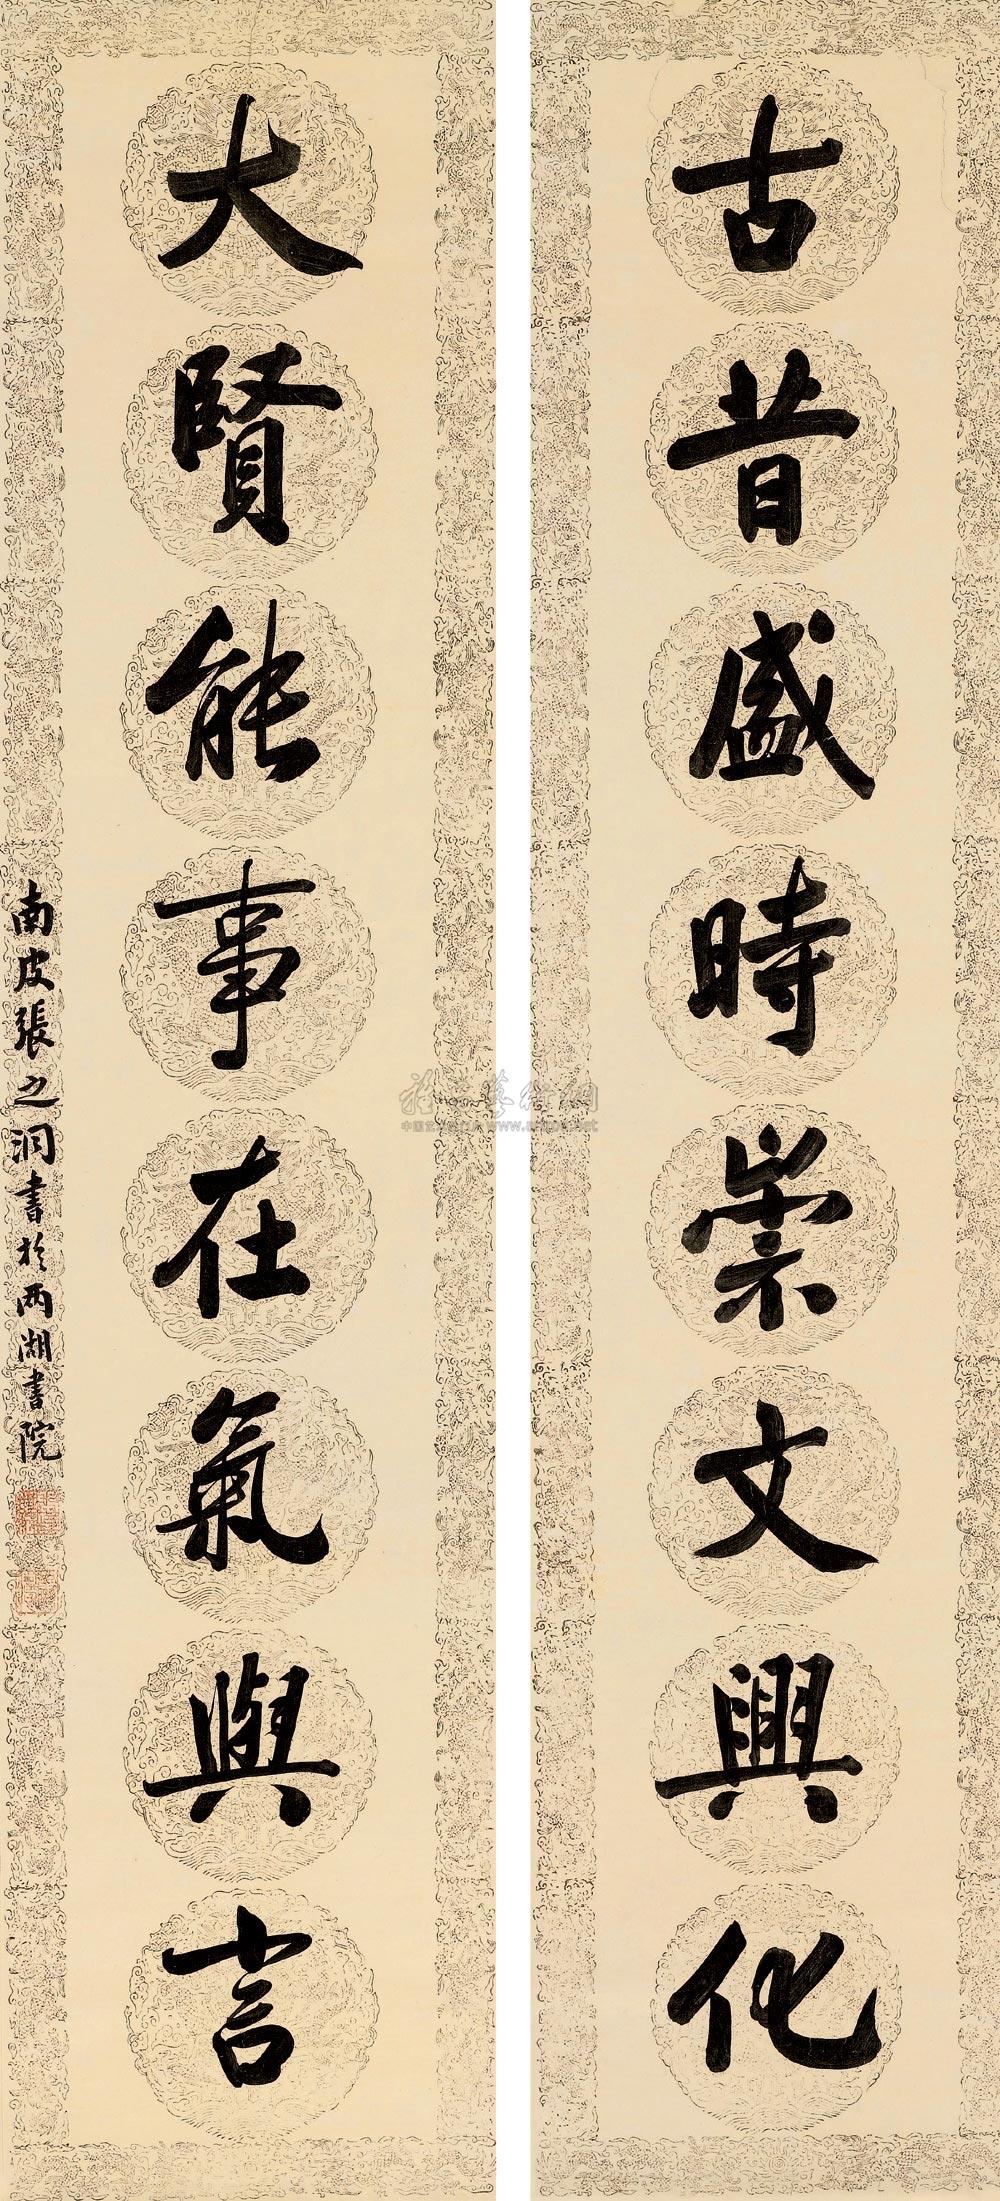 古昔盛時崇文興化
大賢能事在氣與言
南皮張之洞書於兩湖書院